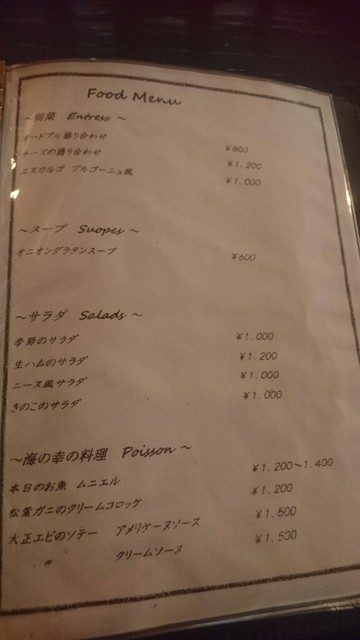 Food Menu
～前菜 Entress～
オードブル盛り合わせ ¥800
チーズの盛り合わせ ¥1.200
エスカルゴ ブルゴーニュ風 ¥1.000
～スープ Suopes～
オニオングラタンスープ ¥600
～サラダ Salads～
季節のサラダ ¥1.000
生ハムのサラダ ¥1.200
ニース風サラダ ¥1.000
きのこのサラダ ¥1.000
～海の幸の料理 Poisson～
本日のお魚 ムニエル ¥1.200～1.400
松葉ガニのクリームコロッケ ¥1.200
大正エビのソテー アメリケーヌソース ¥1.500
〃 クリームソース ¥1.500